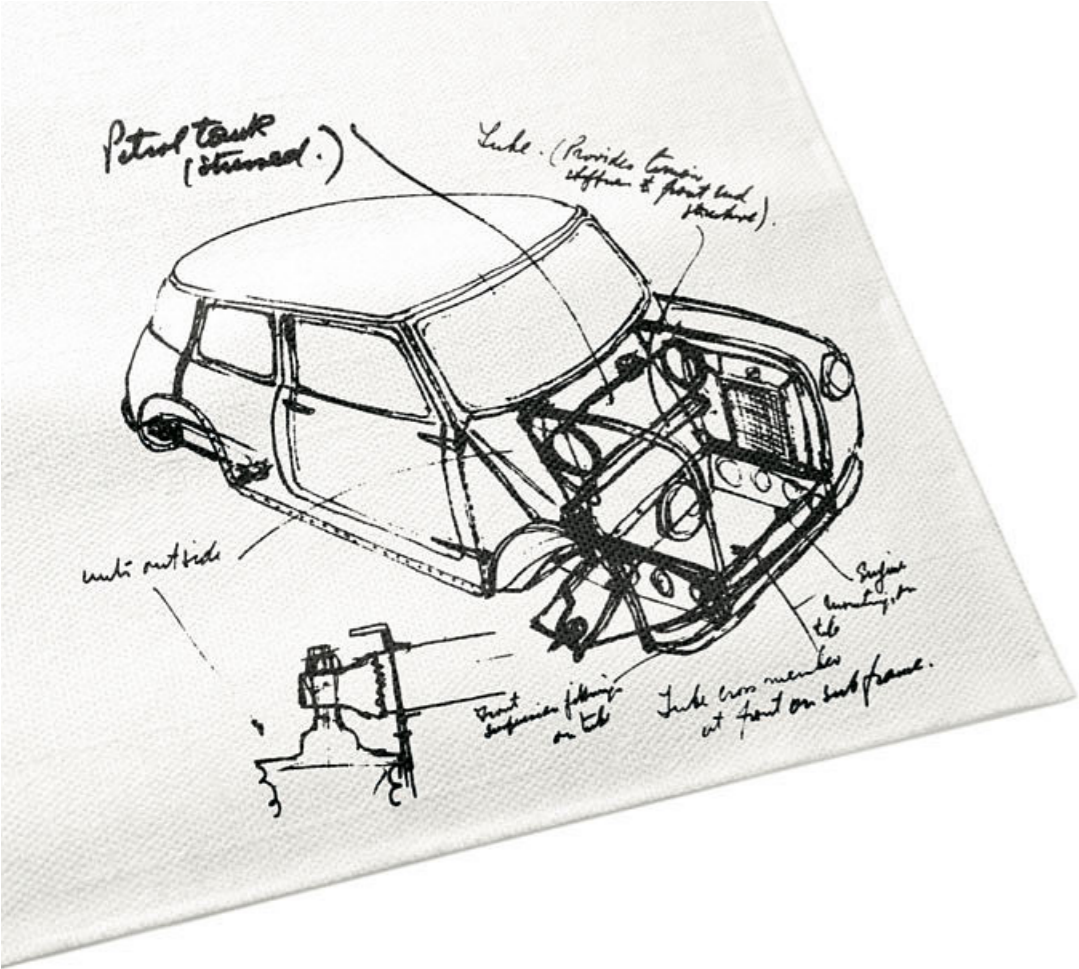 Petrol tank
(stressed.)
Tube. (Provides torsion
stiffness to front end
structure).
outside
Engine
mounting, on
tube
Front
suspension fittings
on tube
Tube cross member
at front on subframe.